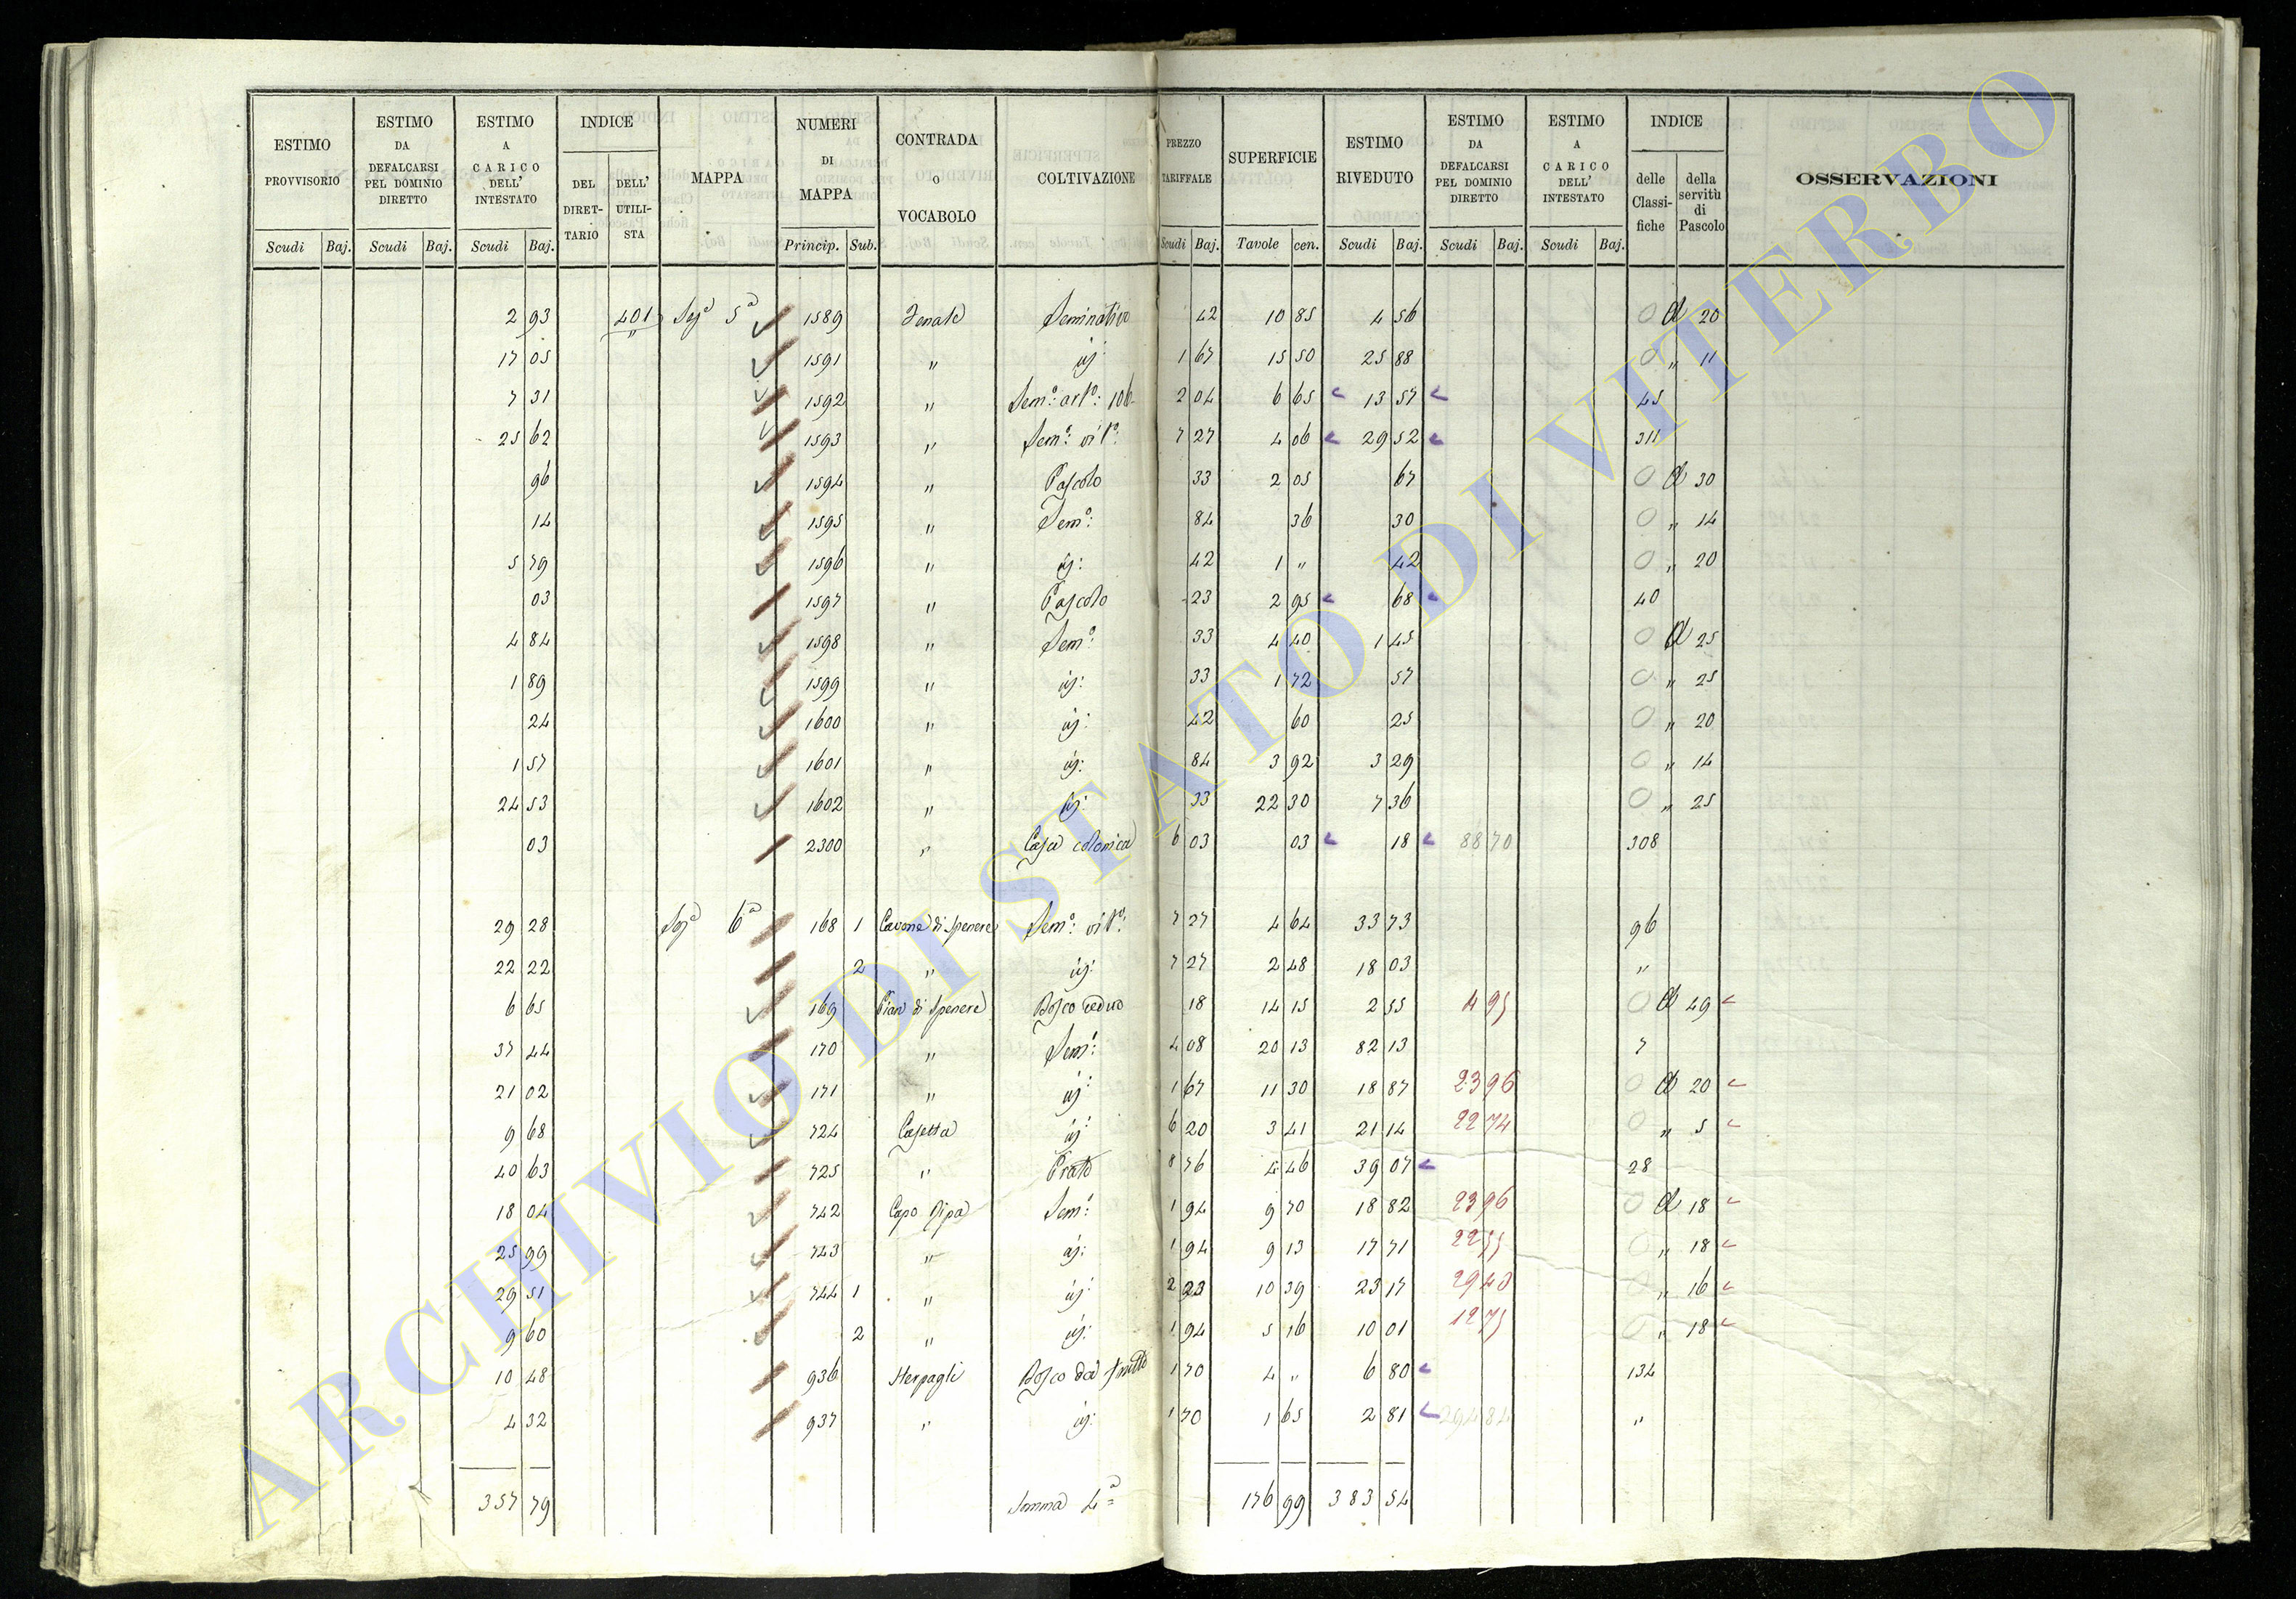 ESTIMO PROVVISORIO | ESTIMO DA DEFALCARSI PEL DOMINIO DIRETTO | ESTIMO A CARICO DELL' INTESTATO | INDICE | MAPPA | NUMERI DI MAPPA | CONTRADA O VOCABOLO | COLTIVAZIONE | PREZZO TARIFFALE | SUPERFICIE | ESTIMO RIVEDUTO | ESTIMO DA DEFALCARSI PEL DOMINIO DIRETTO | ESTIMO A CARICO DELL' INTESTATO | INDICE | OSSERVAZIONI
DEL DIRET-TARIO | DELL' UTILI-STA | delle Classi-fiche | della servitù di Pascolo
Scudi | Baj. | Scudi | Baj. | Scudi | Baj. | Princip. | Sub. | Scudi | Baj. | Tavole | cen. | Scudi | Baj. | Scudi | Baj. | Scudi | Baj.
2 93 401 Sez.e 5a 1589 Seminativo 42 10 85 4 56 0 a 20
17 05 " 1591 " id: 1 67 15 50 25 88 0 " 11
7 31 1592 " Sem:o art:o 106 2 04 6 65 13 57 45
25 62 1593 " Sem:o vit:o 7 27 4 06 29 52 311
96 1594 " Pascolo 33 2 05 67 0 a 30
14 1595 " Sem:o 84 36 30 0 " 14
5 79 1596 " id: 42 1 " 42 0 " 20
03 1597 " Pascolo 23 2 95 68 40
4 84 1598 " Sem:o 33 4 40 1 45 0 a 25
1 89 1599 " id: 33 1 72 57 0 " 25
24 1600 " id: 42 60 25 0 " 20
1 57 1601 " id: 84 3 92 3 29 0 " 14
24 53 1602 " id: 33 22 30 7 36 0 " 25
03 2300 " Casa colonica 6 03 03 18 88 70 308
29 28 Sez.e 6a 168 1 Cavone di Spenere Sem:o vit:o 7 27 4 64 33 73 96
22 22 2 " id: 7 27 2 48 18 03 "
6 65 169 Pian di Spenere Bosco ceduo 18 14 15 2 55 4 95 0 a 49
37 44 170 " Sem:o 4 08 20 13 82 13 7
21 02 171 " id: 1 67 11 30 18 87 23 96 0 a 20
9 68 724 Casetta id: 6 20 3 41 21 14 22 74 0 " 5
40 63 725 " Prato 8 76 4 46 39 07 28
18 04 742 Capo Ripa Sem:o 1 94 9 70 18 82 23 96 0 a 18
25 99 743 " id: 1 94 9 13 17 71 22 55 0 " 18
29 51 744 1 " id: 2 23 10 39 23 17 29 40 " 16
9 60 2 " id: 1 94 5 16 10 01 12 75 0 " 18
10 48 936 Bosco da frutto 1 70 4 " 6 80 134
4 32 937 " id: 1 70 1 65 2 81 294 84 "
357 79 Somma 4a 176 99 383 54
ARCHIVIO DI STATO DI VITERBO